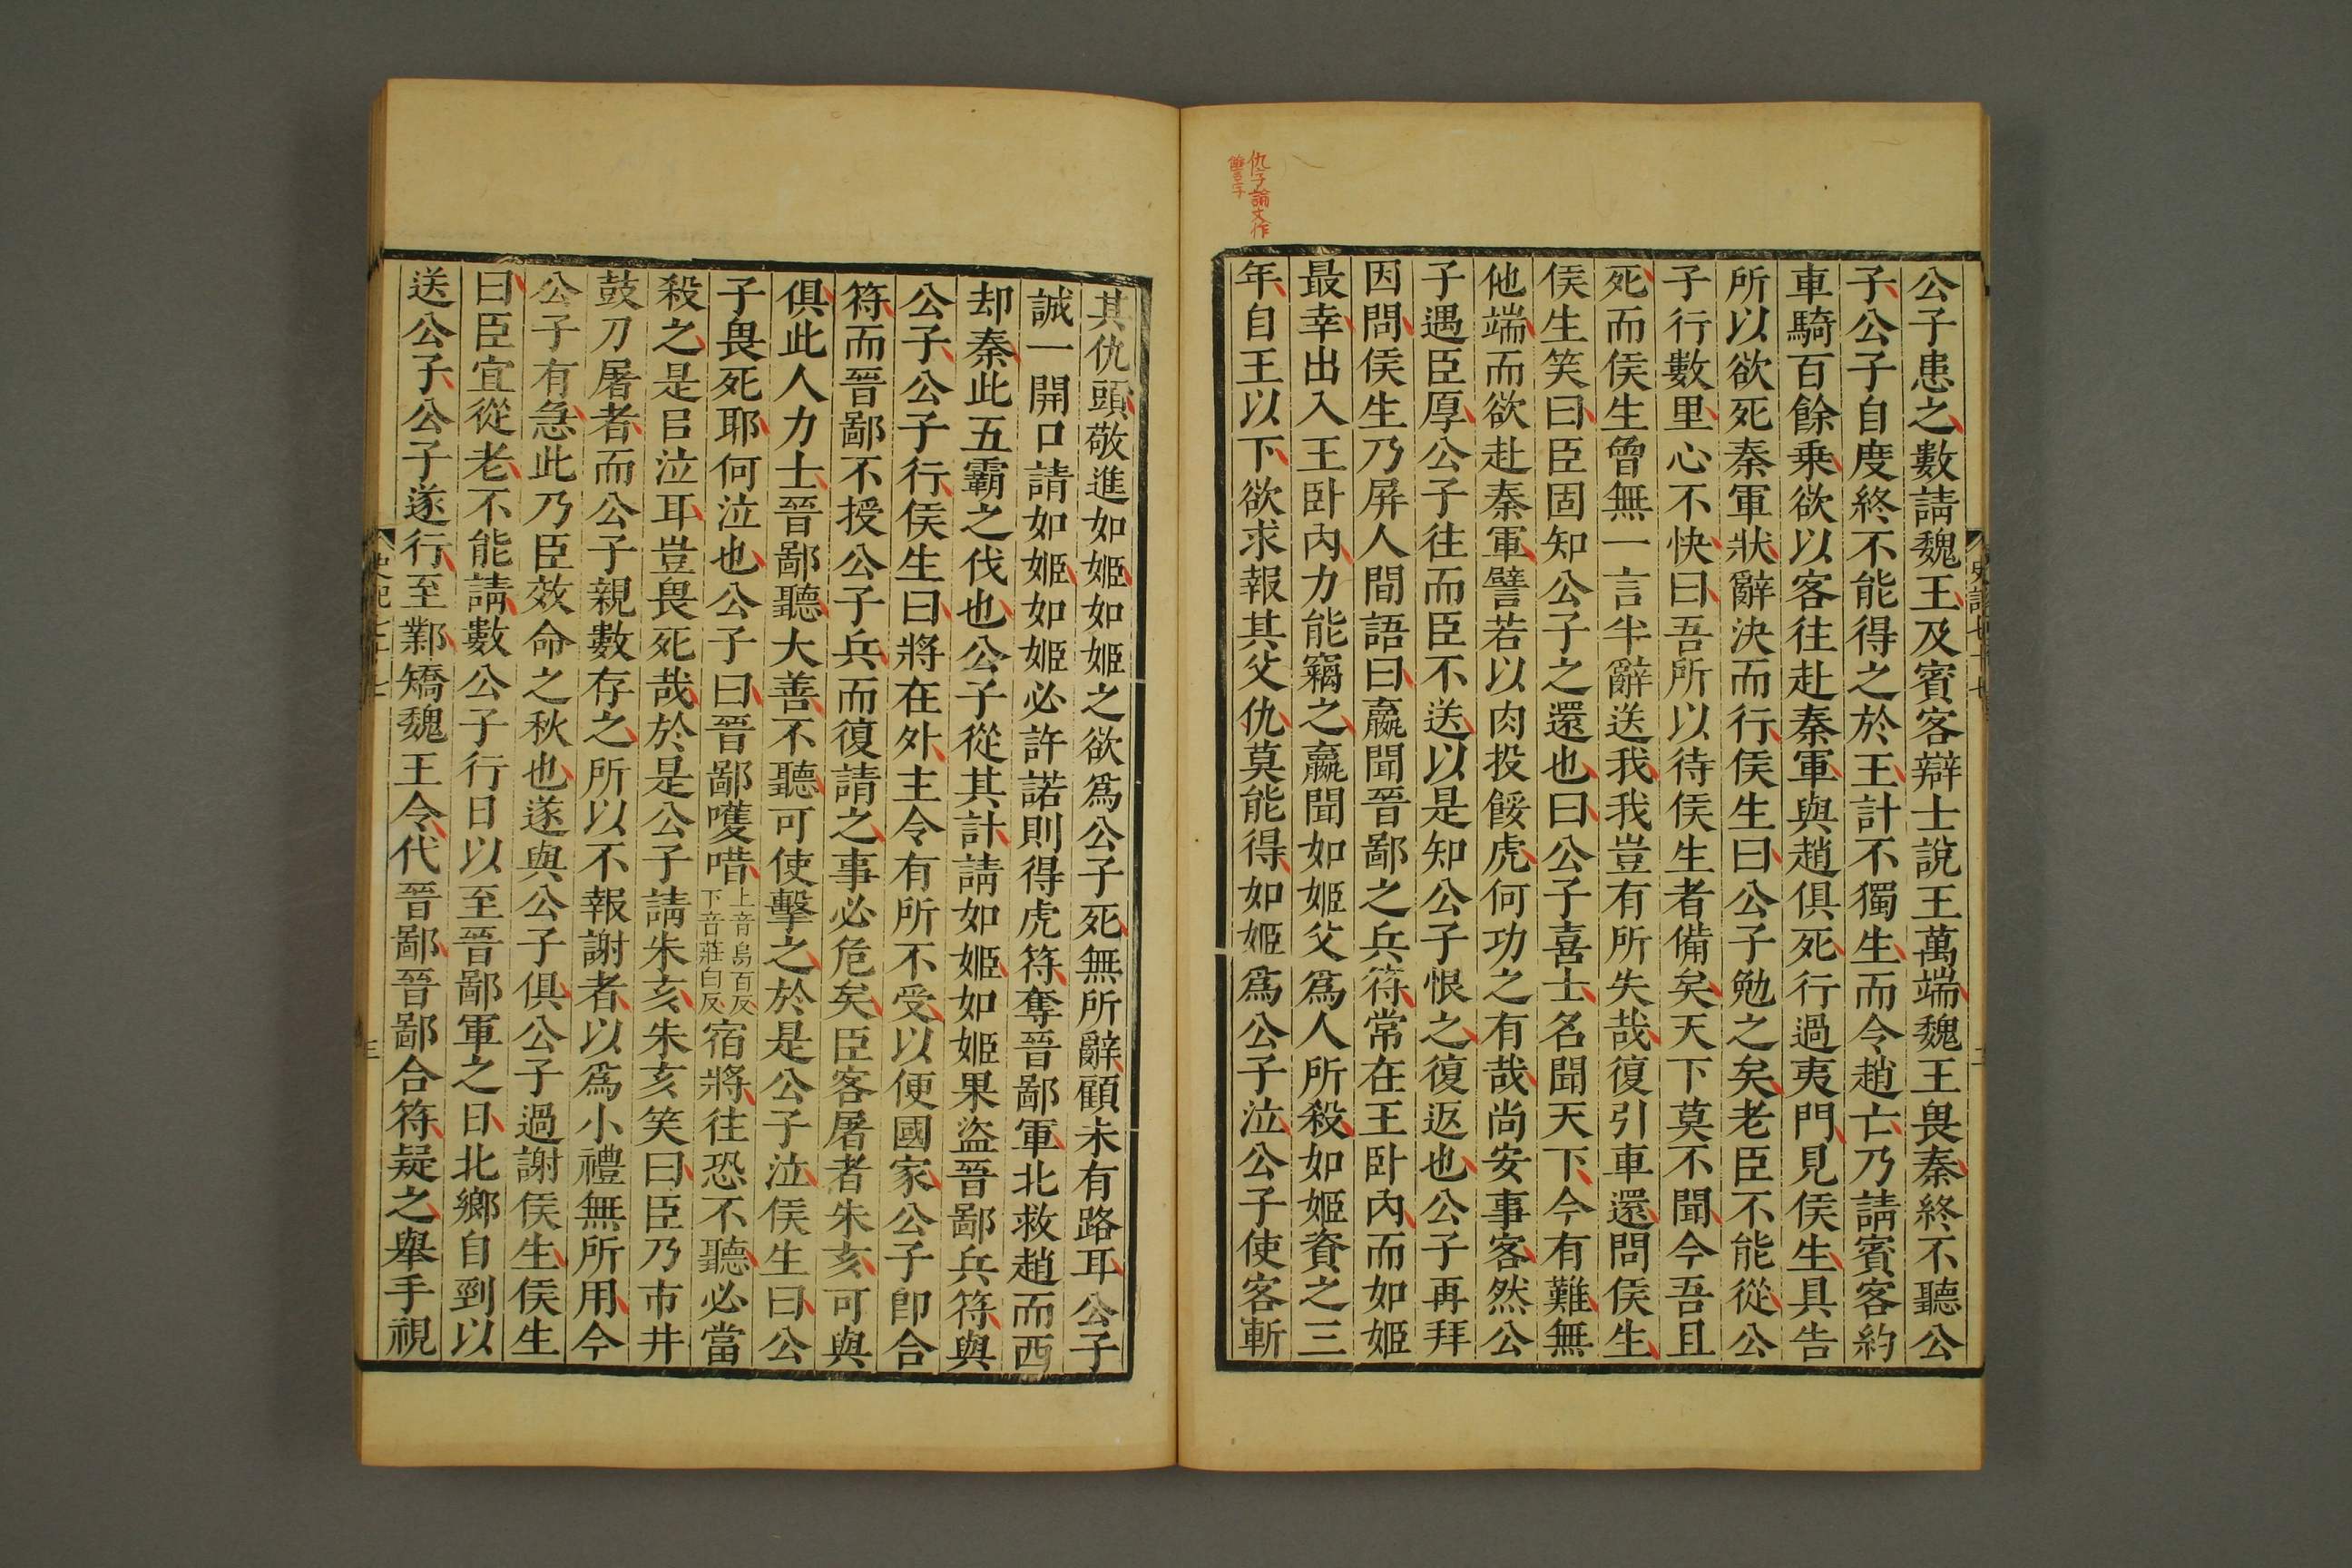 仇字論文作
讐字
公子患之數請魏王及賓客辯士說王萬端魏王畏秦終不聽公
子公子自度終不能得之於王計不獨生而令趙亡乃請賓客約
車騎百餘乗欲以客往赴秦軍與趙俱死行過夷門見侯生具告
所以欲死秦軍狀辭決而行侯生曰公子勉之矣老臣不能從公
子行數里心不快曰吾所以待侯生者備矣天下莫不聞今吾且
死而侯生曾無一言半辭送我我豈有所失哉復引車還問侯生
侯生笑曰臣固知公子之還也曰公子喜士名聞天下今有難無
他端而欲赴秦軍譬若以肉投餒虎何功之有哉尚安事客然公
子遇臣厚公子往而臣不送以是知公子恨之復返也公子再拜
因問侯生乃屏人間語曰嬴聞晉鄙之兵符常在王卧內而如姬
最幸出入王卧內力能竊之嬴聞如姬父爲人所殺如姬資之三
年自王以下欲求報其父仇莫能得如姬爲公子泣公子使客斬
史記七十七
其仇頭敬進如姬如姬之欲爲公子死無所辭顧未有路耳公子
誠一開口請如姬如姬必許諾則得虎符奪晉鄙軍北救趙而西
却秦此五霸之伐也公子從其計請如姬如姬果盜晉鄙兵符與
公子公子行侯生曰將在外主令有所不受以便國家公子卽合
符而晉鄙不授公子兵而復請之事必危矣臣客屠者朱亥可與
俱此人力士晉鄙聽大善不聽可使擊之於是公子泣侯生曰公
子畏死耶何泣也公子曰晉鄙嚄唶上音烏百反下音莊白反宿將往恐不聽必當
殺之是㠯泣耳豈畏死哉於是公子請朱亥朱亥笑曰臣乃市井
鼓刀屠者而公子親數存之所以不報謝者以爲小禮無所用今
公子有急此乃臣效命之秋也遂與公子俱公子過謝侯生侯生
曰臣宜從老不能請數公子行日以至晉鄙軍之日北鄉自剄以
送公子公子遂行至鄴矯魏王令代晉鄙晉鄙合符疑之舉手視
史記七十七
三